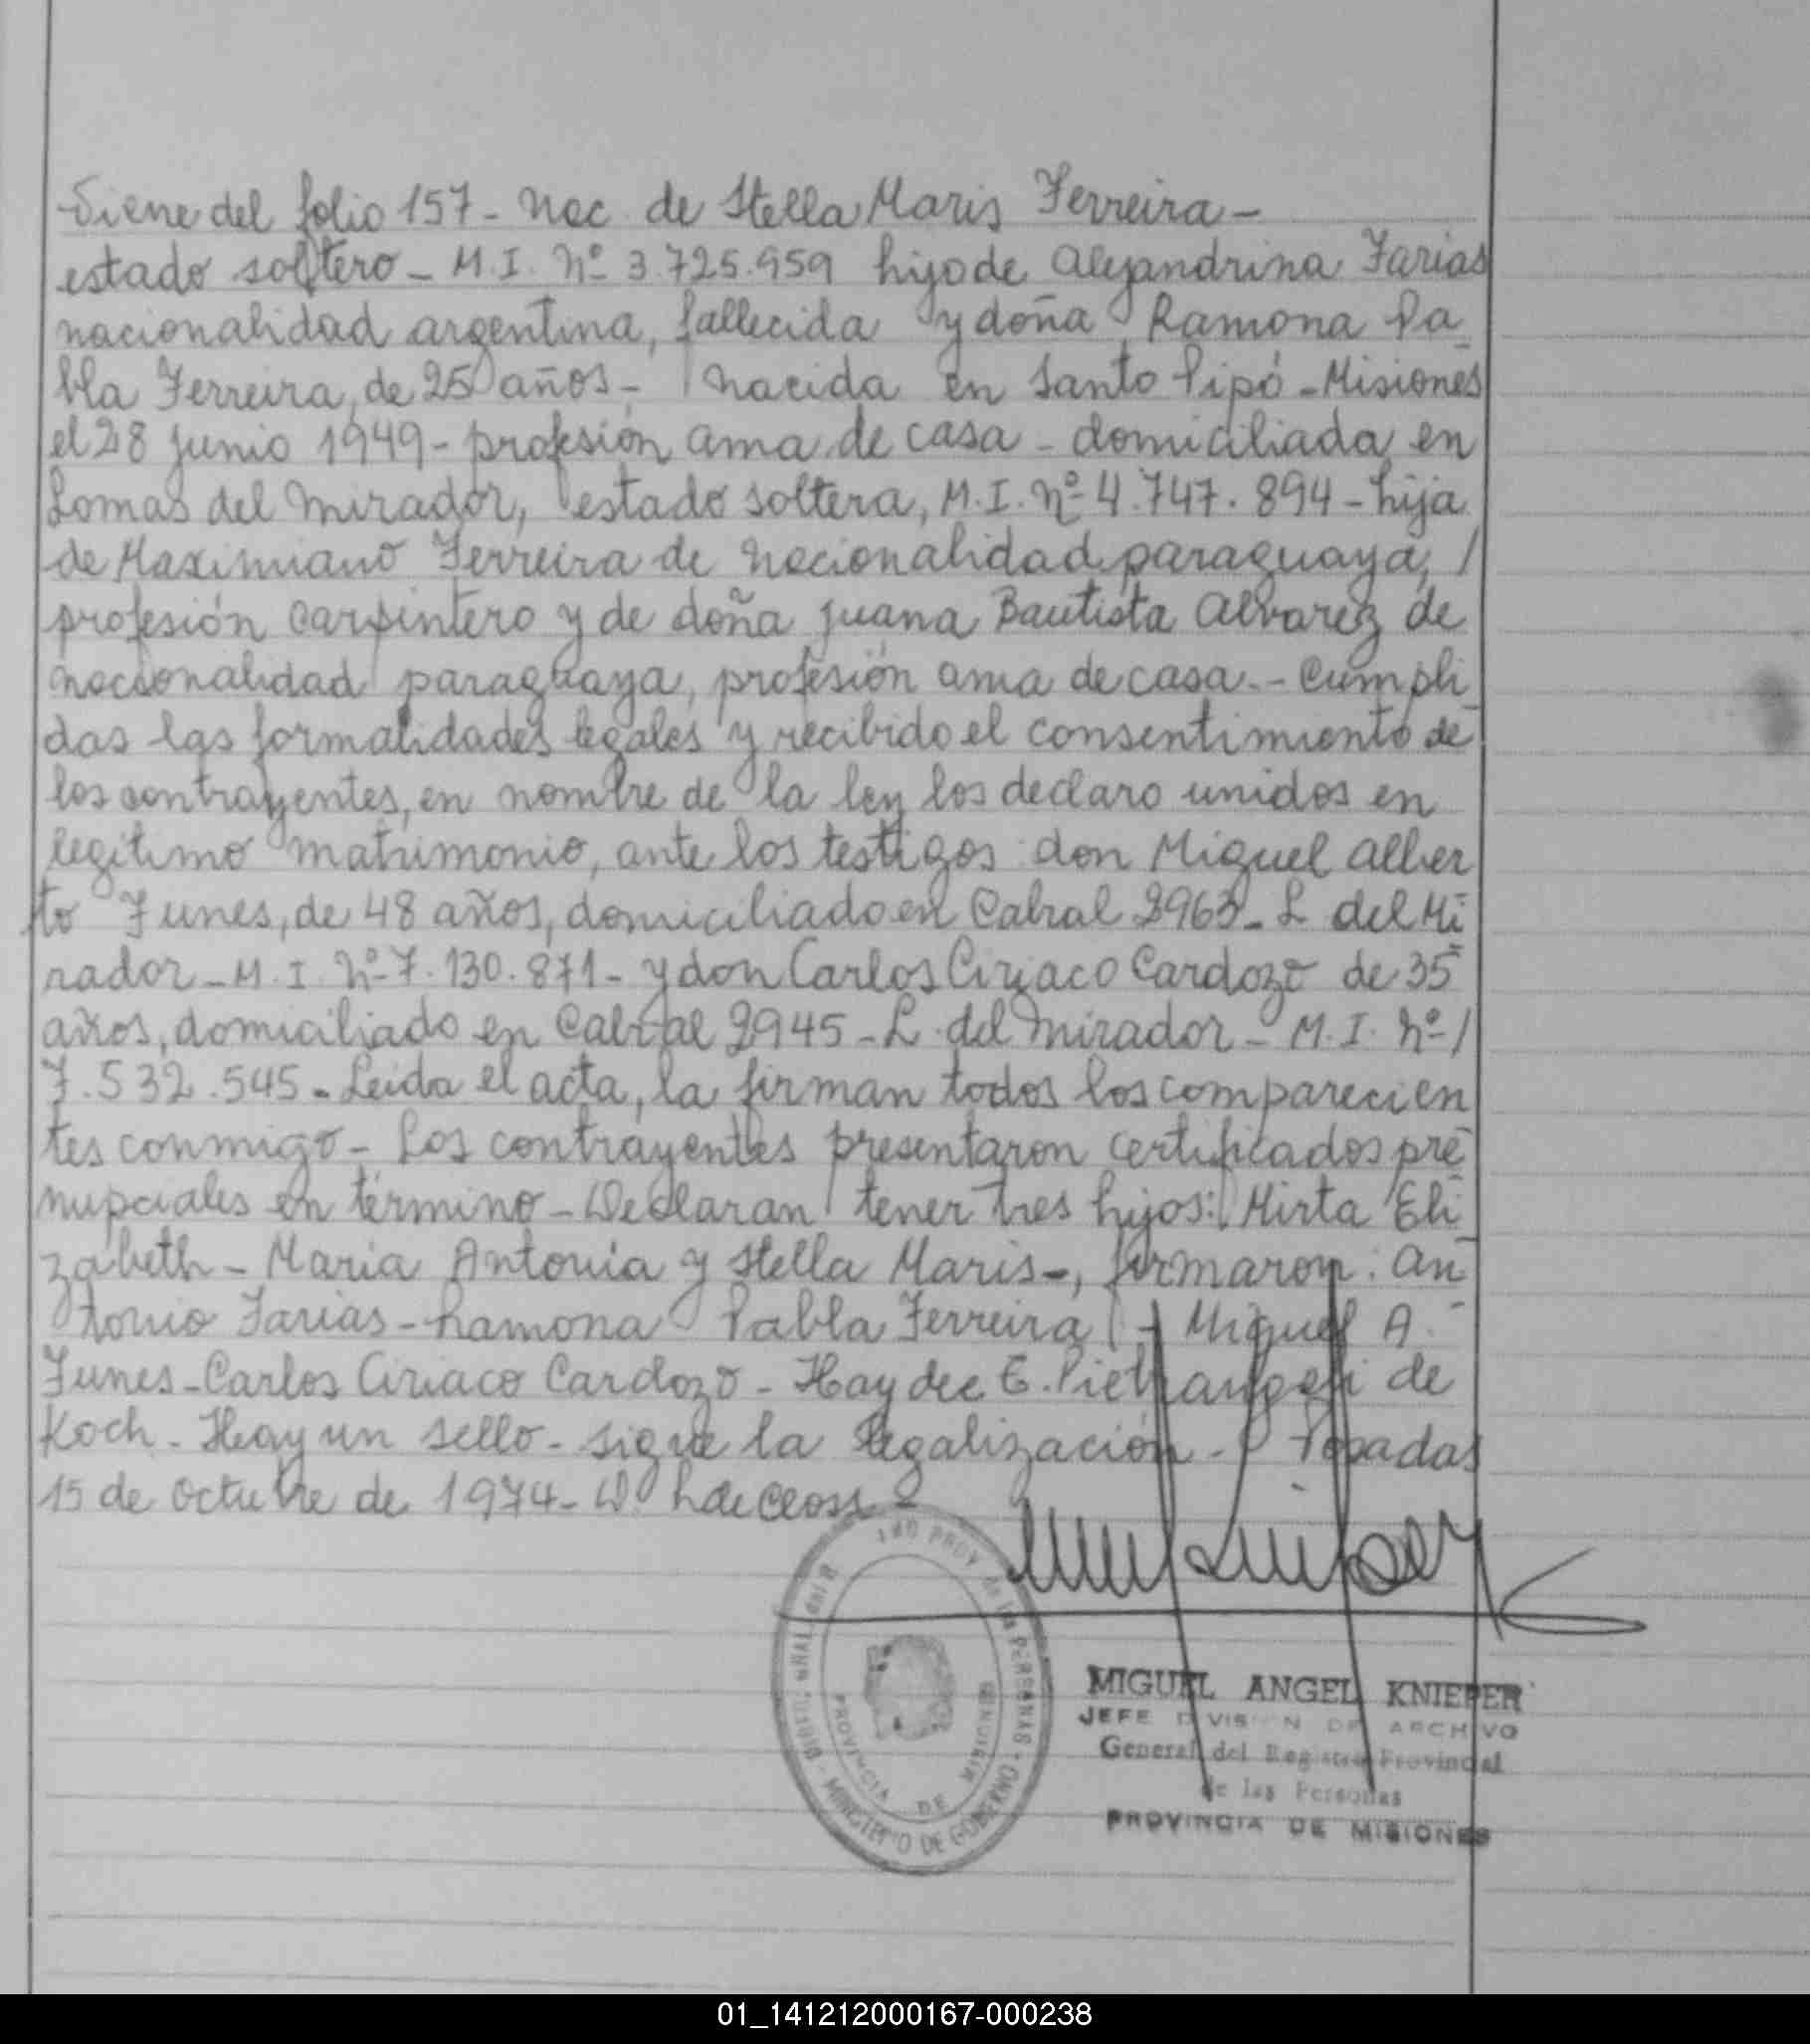 Viene del folio 157 - Nac. de Stella Maris Ferreira -
estado soltero - M.I. Nº 3.725.959 hijo de Alejandrina Farias
nacionalidad argentina, fallecida y doña Ramona Pa
bla Ferreira, de 25 años - nacida en Santo Pipó - Misiones
el 28 junio 1949 - profesión ama de casa - domiciliada en
Lomas del Mirador, estado soltera, M.I. Nº 4.747.894 - hija
de Maximiano Ferreira de nacionalidad paraguaya, /
profesión carpintero y de doña Juana Bautista Alvarez de
nacionalidad paraguaya, profesión ama de casa. - Cumpli
das las formalidades legales y recibido el consentimiento de
los contrayentes, en nombre de la ley los declaro unidos en
legitimo matrimonio, ante los testigos don Miguel Alber
to Funes, de 48 años, domiciliado en Cabral 2963 - L. del Mi
rador - M.I. Nº 7.130.871 - y don Carlos Ciriaco Cardozo de 35
años, domiciliado en Cabral 2945 - L. del Mirador - M.I. Nº /
7.532.545 - Leida el acta, la firman todos los comparecien
tes conmigo - Los contrayentes presentaron certificados pre
nupciales en término - Declaran tener tres hijos: Mirta Eli
zabeth - Maria Antonia y Stella Maris -, firmaron: An
tonio Farias - Ramona Pabla Ferreira - Miguel A.
Funes - Carlos Ciriaco Cardozo - Haydee E. Pietrangeli de
Koch - Hay un sello - sigue la legalización - Posadas
15 de Octubre de 1974 -
MIGUEL ANGEL KNIEPER
JEFE DIVISION DE ARCHIVO
General del Registro Provincial
de las Personas
PROVINCIA DE MISIONES
PROV. de las PERSONAS - MINISTERIO DE GOBIERNO
PROVINCIA DE MISIONES
01_141212000167-000238